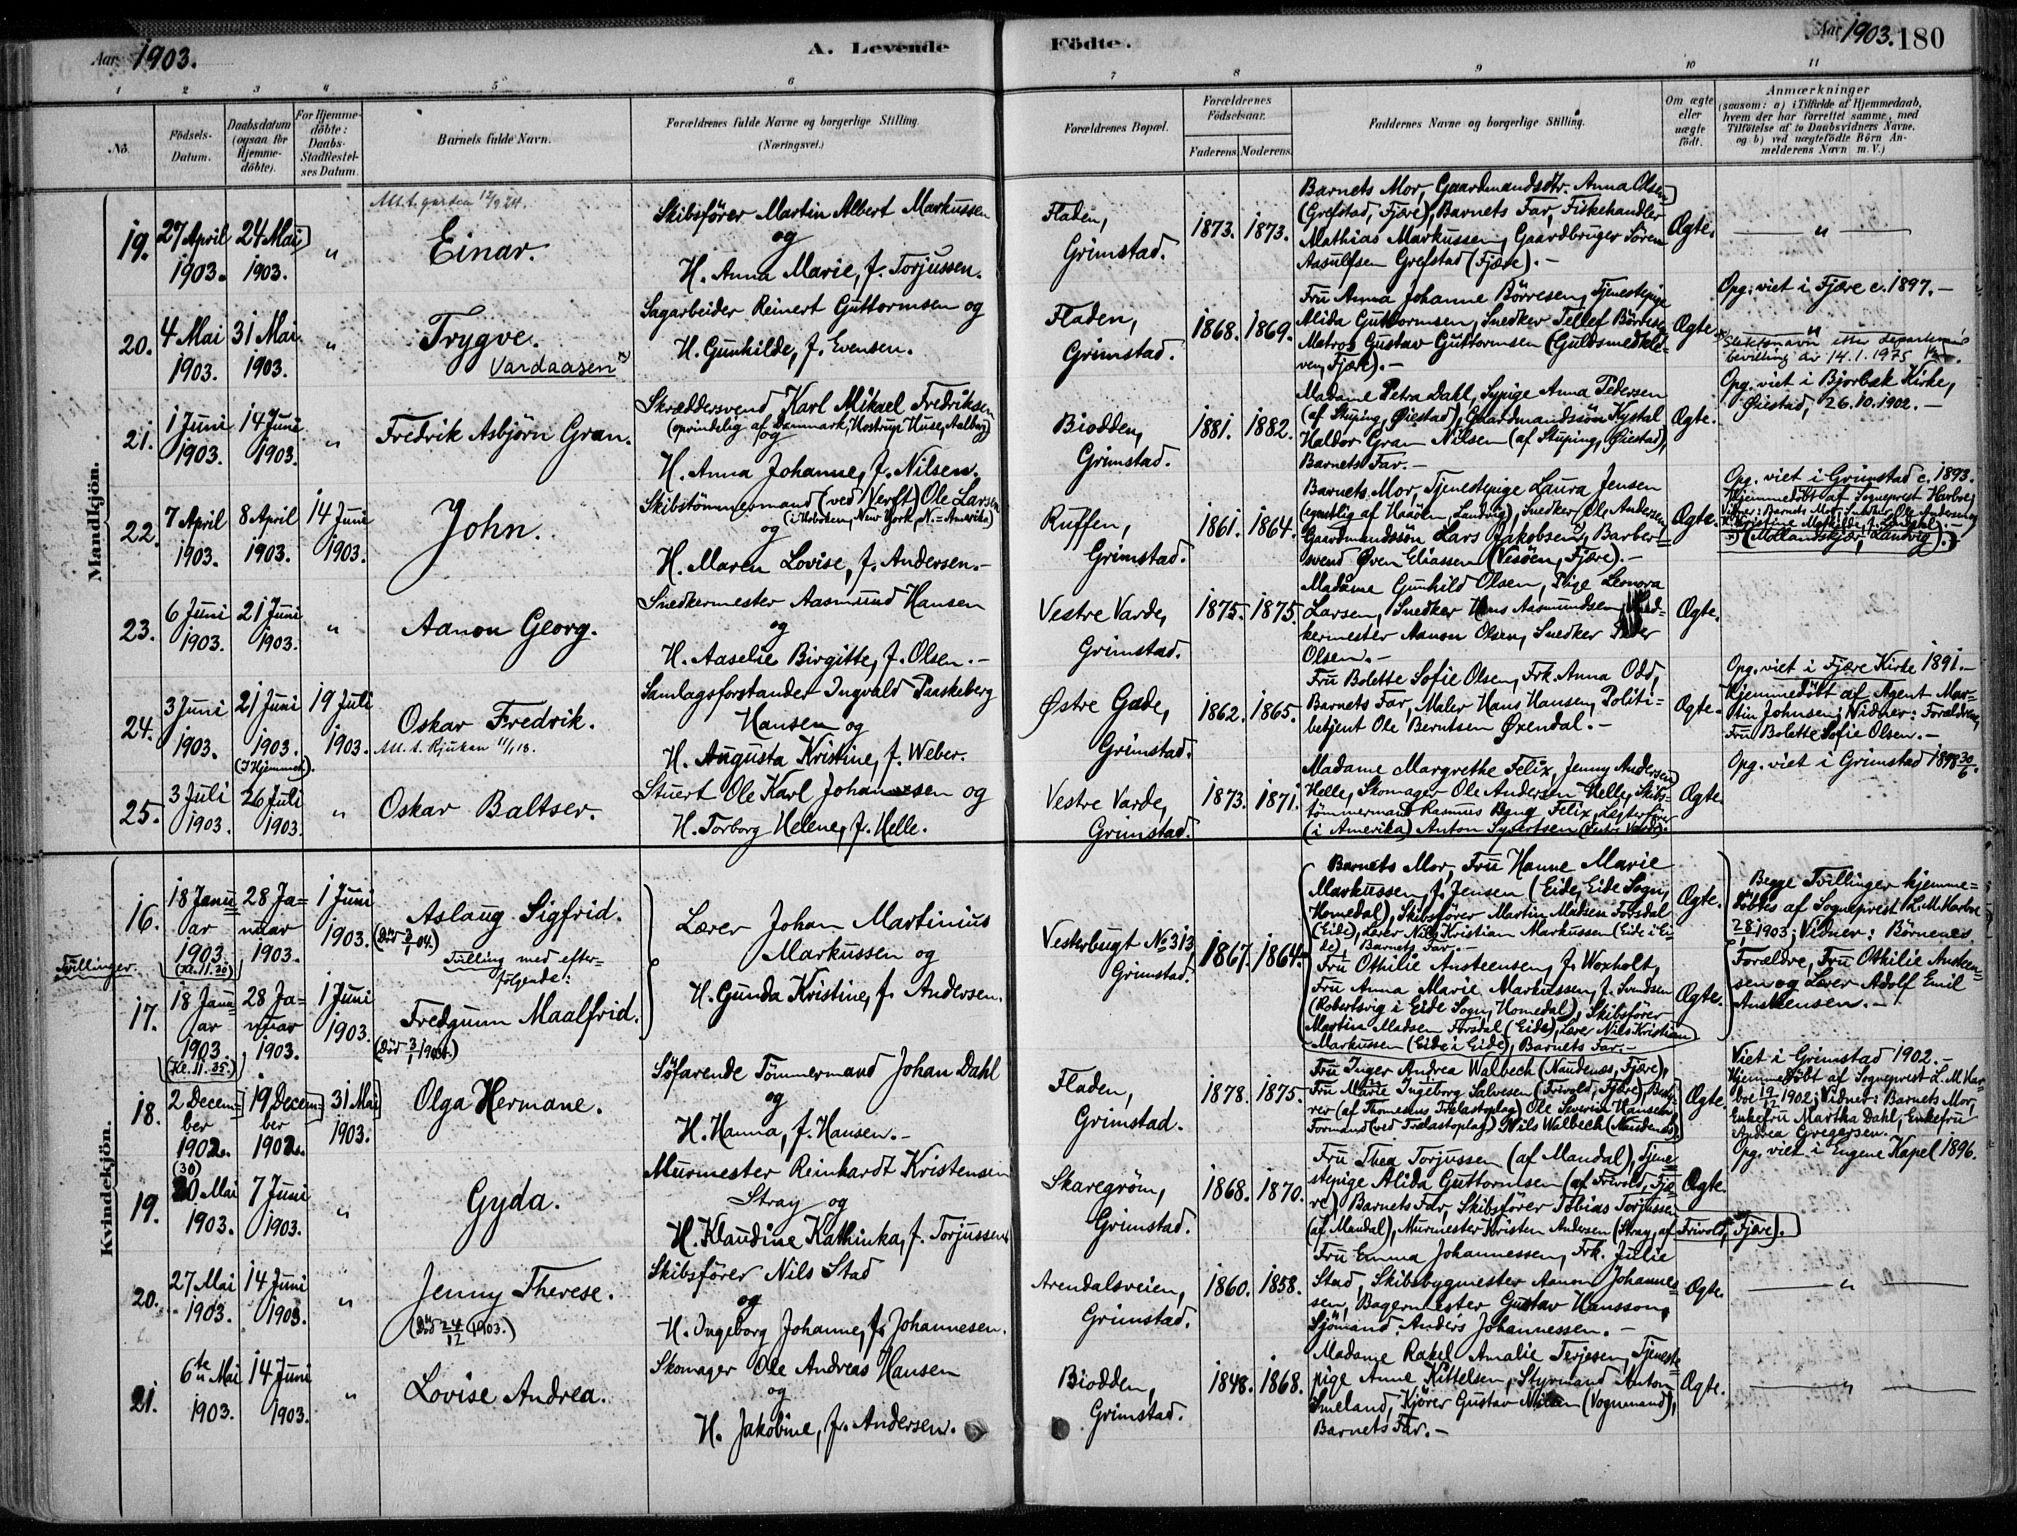 Aar 1903.
A. Levende
Födte.
Aar 1903. 180
1 2 3 4 5 6 7 8 9 10 11
No.
Födsels-
Datum.
Daabsdatum
(ogsaa for
Hjemme-
döbte).
For Hjemme-
döbte:
Daabs-
Stadfæstel-
ses Datum.
Barnets fulde Navn.
Forældrenes fulde Navne og borgerlige Stilling.
(Næringsvei.)
Forældrenes Bopæl.
Forældrenes
Födselsaar.
Faderens. Moderens.
Faddernes Navne og borgerlige Stilling.
Om ægte
eller
uægte
födt.
Anmærkninger
(saasom: a) i Tilfælde af Hjemmedaab,
hvem der har forrettet samme, med
Tilföielse af to Daabsvidners Navne,
og b) ved uægtefödte Börn An-
melderens Navn m. V.)
Mandkjön.
19.
27 April
1903.
24 Mai
1903.
"
12/9 24.
Einar.
Skibsförer Martin Albert Markussen
og
H. Anna Marie, f. Torjussen.
Fladen,
Grimstad.
1873. 1873.
Barnets Mor, Gaardmandsdtr. Anna Olsen
(Grefstad, Fjære), Barnets Far, Fiskehandler
Mathias Markussen, Gaardbruger Sören
Aasulfsen Grefstad (Fjære). -
Ægte.
"
20.
4 Mai
1903.
31 Mai
1903.
"
Trygve.
Vardaasen x)
Sagarbeider Reinert Guttormsen og
H. Gunhilde, f. Evensen.
Fladen,
Grimstad.
1868. 1869.
Fru Anna Johanne Börresen, Tjenestepige
Alida Guttormsen, Snedker Tellef Börresen
Matros Gustav Guttormsen (Guldsmedkle-
ven, Fjære). -
Ægte
Opg. viet i Fjære c. 1897. -
"
Slektsnavn etter departements
bevilling av 14.1.1975
21.
1 Juni
1903.
14 Juni
1903.
"
Fredrik Asbjörn Gran.
Skræddersvend Karl Mikael Fredriksen
(oprindelig af Danmark, Hostrups Huse, Aalborg)
og
H. Anna Johanne, f. Nilsen.
Biodden,
Grimstad.
1881. 1882.
Madame Petra Dahl, Sypige Anna Pedersen
(af Stuping, Øiestad), Gaardmandssön Kystal
Haldor Gran Nilsen (af Stuping, Øiestad),
Barnets Far. -
Ægte.
Opg. viet i Bjorbæk Kirke,
Øiestad, 26.10.1902. -
22.
7 April
1903.
8 April
1903.
14 Juni
1903.
John.
Skibstömmermand (ved Verft) Ole Larsen
(i Hoboken, New York, N.=Amerika)
og
H. Maren Lovise, f. Andersen. -
Ruffen,
Grimstad.
1861. 1864.
Barnets Mor, Tjenestepige Laura Jensen
(egentlig af Haaölen, Landvig), Snedker Ole Andersen
Gaardmandssön Lars Jakobsen, Barber=
svend Øven Eliassen (Vesöen, Fjære). -
Ægte.
Opg. viet i Grimstad c. 1893.
Hjemmedöbt af Sogneprest Harboe,
Vidner: Barnets Mor, Snedker Ole Andersen og
Kristine Mathilde, f. Lindahl. -
x) (Mollandskjær, Landvig).
23.
6 Juni
1903.
21 Juni
1903.
"
Aanon Georg.
Snedkermester Aasmund Hansen
og
H. Aaselie Birgitte, f. Olsen. -
Vestre Varde,
Grimstad.
1875. 1875.
Madame Gunhild Olsen, Pige Leonora
Larsen, Snedker Hans Aasmundsen, Sned-
kermester Aanon Olsen, Snedker Peder
Olsen. -
Ægte.
24.
3 Juni
1903.
21 Juni
1903.
(I Hjemmet).
19 Juli
1903.
Oskar Fredrik.
Att. t. Rjukan 11/1 18.
Samlagsforstander Ingvald Paaskeberg
Hansen og
H. Augusta Kristine, f. Weber.
Østre Gade,
Grimstad.
1862. 1865.
Fru Bolette Sofie Olsen, Frk. Anna Odd,
Barnets Far, Maler Hans Hansen, Politi=
betjent Ole Berntsen Øxendal. -
Ægte.
Opg. viet i Fjære Kirke 1891. -
Hjemmedöbt af Agent Mar-
tin Johnsen; Vidner: Forældrene,
Fru Bolette Sofie Olsen. -
25.
3 Juli
1903.
26 Juli
1903.
"
Oskar Baltser.
Stuert Ole Karl Johannesen og
H. Torborg Helene, f. Helle.
Vestre Varde,
Grimstad.
1873. 1871.
Madame Margrethe Felix, Jenny Andersen
Helle, Skomager Ole Andersen Helle, Skibs-
tömmermand Rasmus Felix, Legterförer
(i Amerika) Anton Syvertsen (Vestre Varde).
Ægte.
Opg. viet i Grimstad 1898 30/6.
Kvindekjön.
Tvillinger.
16.
18 Janu=
ar
1903.
(Kl. 11.20)
28 Ja=
nuar
1903.
1 Juni
1903.
Aslaug Sigfrid.
(Död 3/1 04.)
Tvilling med efter=
fölgende!
Lærer Johan Martinius
Markussen og
H. Gunda Kristine, f. Andersen.
Vesterbugt No. 313,
Grimstad.
1867. 1864.
Barnets Mor, Fru Hanne Marie
Markussen, f. Jensen (Eide, Eide Sogn,
Homedal), Skibsförer Martin Madsen Forsdal
(Eide), Lærer Nils Kristian Markussen (Eide i Ei-
de), Barnets Far. -
Ægte.
Begge Tvillinger hjemme=
döbtes af Sogneprest L. M. Harboe
28/1 1903; Vidner: Börnenes
Forældre, Fru Othilie Ansten-
sen og Lærer Adolf Emil
Anstensen. -
17.
18 Janu=
ar
1903.
(Kl. 11.35.)
28 Ja=
nuar
1903.
1 Juni
1903.
Fredgunn Maalfrid.
(Död 3/1 1904.)
Fru Othilie Ansteensen, f. Woxholt,
Fru Anna Marie Markussen, f. Svendsen
(Robertsvig i Eide Sogn, Homedal), Skibsförer
Martin Madsen Forsdal (Eide), Lærer Nils Kristian
Markussen (Eide i Eide), Barnets Far. -
Ægte.
18.
2 Decem=
ber
1902.
19 Decem=
ber
1902.
31 Mai
1903.
Olga Hermane.
Söfarende Tömmermand Johan Dahl
og
H. Hanna, f. Hansen. -
Fladen,
Grimstad.
1878. 1875.
Fru Inger Andrea Walbech (Naudenæs, Fjære),
Fru Marie Ingeborg Salvesen (Frivold, Fjære), Besty=
rer (af Thomesens Trælastoplag) Ole Severin Hansen,
Formand (ved Trælastoplag) Nils Walbech (Naudenæs).
Ægte.
Viet i Grimstad 1902. -
Hjemmedöbt af Sogneprest L. M. Har=
boe 19/12 1902; Vidner: Barnets Mor,
Enkefru Martha Dahl, Enkefru
Andrea Gregersen.
19.
(30)
30 Mai
1903.
7 Juni
1903.
"
Gyda.
Murmester Reinhardt Kristensen
Stray og
H. Klaudine Kathinka, f. Torjussen
Skaregrøm,
Grimstad.
1868. 1870.
Fru Thea Torjussen (af Mandal), Tjene=
stepige Alida Guttormsen (af Frivold, Fjæ-
re), Barnets Far, Skibsförer Tobias Torjussen
(af Mandal), Murmester Kristen Andersen (Stray, af Frivold, Fjære).
Ægte.
Opg. viet i Eugene Kapel 1896.
20.
27 Mai
1903.
14 Juni
1903.
"
Jenny Therese.
(Död 24/12 1903.)
Skibsförer Nils Stad
og
H. Ingeborg Johanne, f. Johannesen.
Arendalsveien,
Grimstad.
1860. 1858.
Fru Emma Johannessen, Frk. Julie
Stad, Skibsbygmester Aanon Johanne=
sen, Bagermester Gustav Hansson,
Sjömand Anders Johannessen. -
Ægte.
"
21.
6te Mai
1903.
14 Juni
1903.
"
Lovise Andrea.
Skomager Ole Andreas Hansen
og
H. Jakobine, f. Andersen.
Biodden,
Grimstad.
1848. 1868.
Madame Rakel Amalie Terjesen, Tjeneste=
pige Anne Kittelsen, Styrmand Anton
Smeland, Kjörer Gustav Nilsen (Vognmand),
Barnets Far. -
Ægte.
"